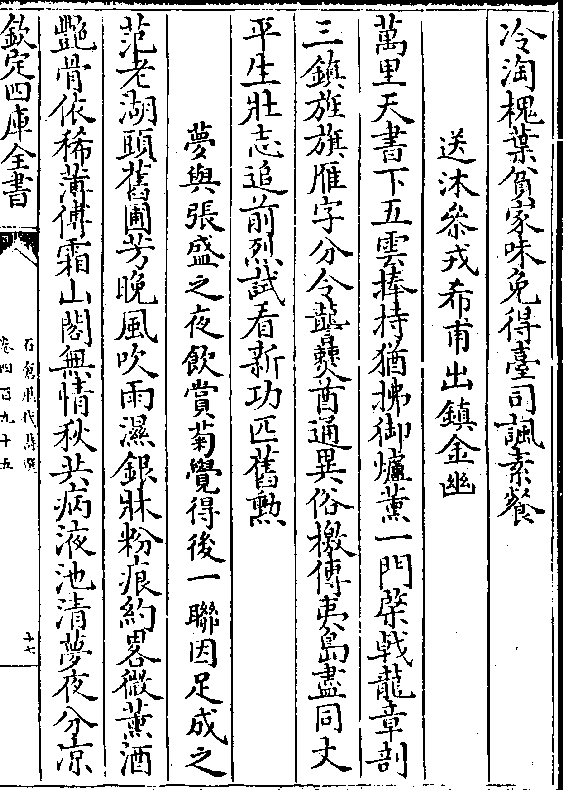 冷淘槐葉貧家味免得臺司諷素餐
送沐叅戎希甫出鎮金幽
萬里天書下五雲捧持猶拂御爐薰一門棨㦸龍章剖
三鎮旌旗雁字分令讋㸐酋通異俗檄傳夷島盡同丈
平生壯志追前烈試看新功匹舊勲
夢與張盛之夜飲賞菊覺得後一聯因足成之
范老湖頭舊圃芳晚風吹雨濕銀牀粉痕約畧微薰酒
艷骨依稀薄傅霜山閣無情秋共病液池清夢夜分凉
欽定四庫全書
石倉歷代詩選
卷四百九十五
十七